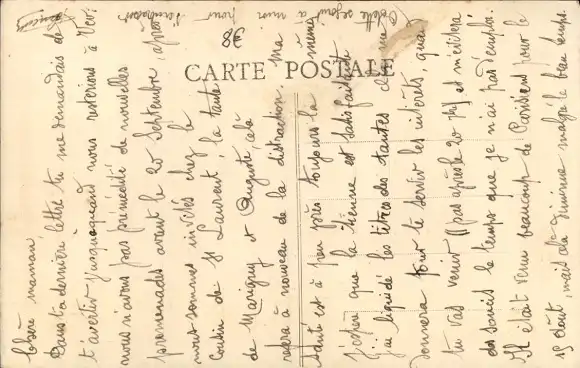 CARTE POSTALE
78
Chère maman
Dans ta dernière lettre tu me demandais de
t'avertir jusqu'à quand nous resterions à
nous n'avons pas prémédité de nouvelles
promenades avant le 20 Septembre, après
nous sommes invités chez le
Cousin de St Laurent, la tante
de Marigny et Auguste, cela
fera à nouveau de la distraction. Ma
santé est à peu près toujours la même
j'espère que la tienne est satisfaisante
j'ai liquidé les titres des tantes
donnera pour te servir les intérêts, quand
tu vas venir (pas après le 20 7bre) et m'évitera
des soucis le temps que je n'ai pas d'emploi.
Il était venu beaucoup de Parisiens pour le
15 Août, mais cela diminue malgré le beau temps.